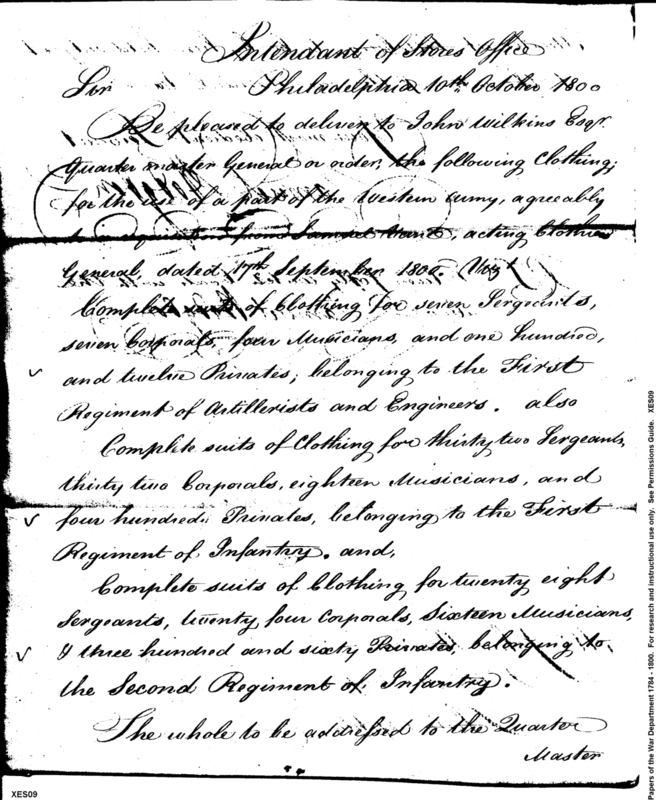 Intendant of Stores Office
Sir Philadelphia 10th. October 1800
Be pleased to deliver to John Wilkins Esqr.
Quarter master General or order, the following Clothing;
for the use of a part of the Western Army, agreeably
to a requisition from Samuel, acting Clothier
General, dated 17th September 1800. Vizt
Complete suits of Clothing for seven Sergeants,
seven Corporals, four Musicians, and one hundred,
and twelve Privates; belonging to the First
Regiment of Artillerists and Engineers. also
Complete suits of Clothing for thirty two Sergeants,
thirty two Corporals, eighteen Musicians, and
four hundred Privates, belonging to the First
Regiment of Infantry. and,
Complete suits of Clothing for twenty eight
Sergeants, twenty four Corporals, Sixteen Musicians,
& three hundred and sixty Privates, belonging to
the Second Regiment of Infantry.
The whole to be addressed to the Quarter
Master
XES09
Papers of the War Department 1784 - 1800. For research and instructional use only. See Permissions Guide. XES09